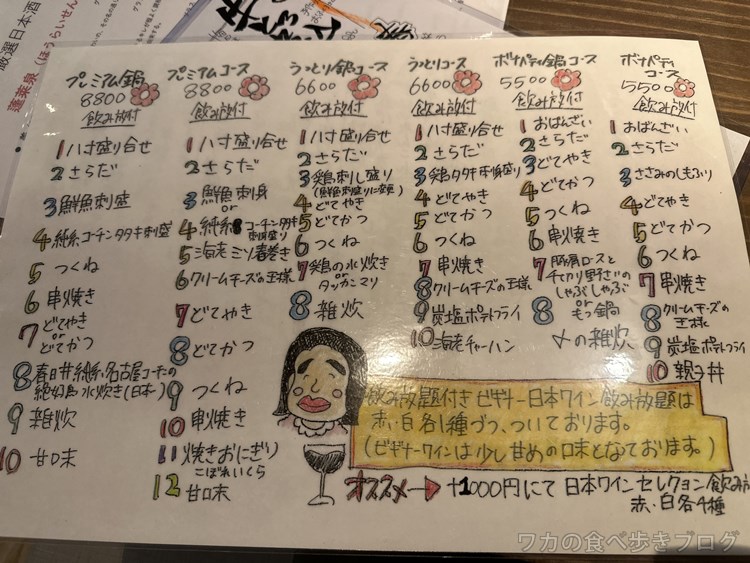 厳選日本酒
蓬莱泉(ほうらいせん
プレミアム鍋
8800
飲み放付
1 八寸盛り合せ
2 さらだ
3 鮮魚刺盛
4 純系コーチンタタキ刺盛
5 つくね
6 串焼き
7 どてやき
or
どてかつ
8 春日井純系名古屋コーチンの
絶好鳥水炊き(日本一)
9 雑炊
10 甘口味
プレミアムコース
8800
飲み放付
1 八寸盛り合せ
2 さらだ
3 鮮魚刺身
or
4 純系コーチンタタキ
刺身盛り
5 海老ミソ春巻き
6 クリームチーズの王様
7 どてやき
8 どてかつ
9 つくね
10 串焼き
11 焼きおにぎり
こぼれいくら
12 甘口味
うっとり鍋コース
6600
飲み放付
1 八寸盛り合せ
2 さらだ
3 鶏刺し盛り
(鮮魚刺盛りに変更)
4 どてやき
5 どてかつ
6 つくね
7 鶏の水炊き
or
タッカンマリ
8 雑炊
うっとりコース
6600
飲み放付
1 八寸盛り合せ
2 さらだ
3 鶏タタキ刺身盛り
4 どてやき
5 どてかつ
6 つくね
7 串焼き
8 クリームチーズの王様
9 炭塩ポテトフライ
10 海老チャーハン
ボナパティ鍋コース
5500
飲み放付
1 おばんざい
2 さらだ
3 どてやき
4 どてかつ
5 つくね
6 串焼き
7 豚肩ロースと
チカリ野さいの
しゃぶしゃぶ
or
8 もつ鍋
〆の雑炊
ボナパティ
コース
5500
飲み放付
1 おばんざい
2 さらだ
3 ささみのしもふり
4 どてやき
5 どてかつ
6 つくね
7 串焼き
8 クリームチーズの
王様
9 炭塩ポテトフライ
10 親子丼
飲み放題付きビギナー日本ワイン飲み放題は
赤・白各1種づつ、ついております。
(ビギナーワインは少し甘めの口味となております。)
オススメ→ +1000円にて 日本ワインセレクション飲み放
赤・白各4種
ワカの食べ歩きブログ